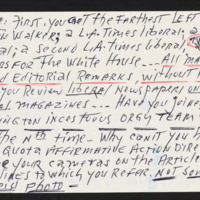 : First, you get the Farthest LEFT
n WALKER; a L.A. Times liberal;
al; a Second L.A. Times liberal,
OS FOR The White House --- All ma
nd Editorial Remarks, without
you Review liberal Newspapers on
al MAGAZINES --- Have you joined
INGTON incestuous ORGY TEAM
the Nth time - Why can't you h
Quota AFFIRMATIVE ACTION Dire
e your cameras on the Article
INES to which you Refer. NOT Som
PHOTO -